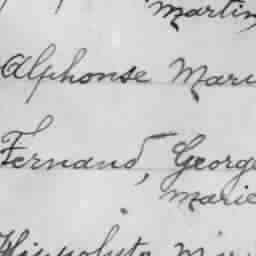 Martin
Alphonse Mari
Fernand, George
Marie
Hippolyte Mari